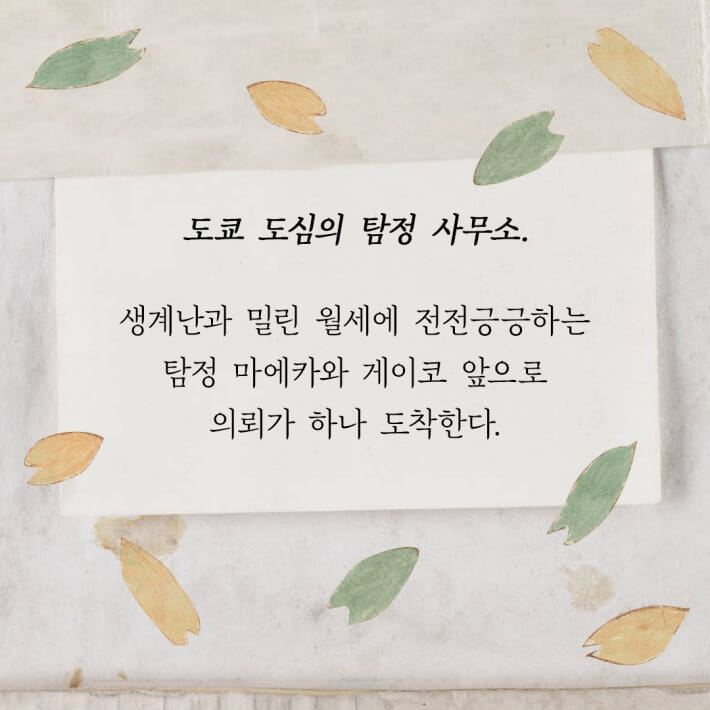 도쿄 도심의 탐정 사무소.
생계난과 밀린 월세에 전전긍긍하는
탐정 마에카와 게이코 앞으로
의뢰가 하나 도착한다.